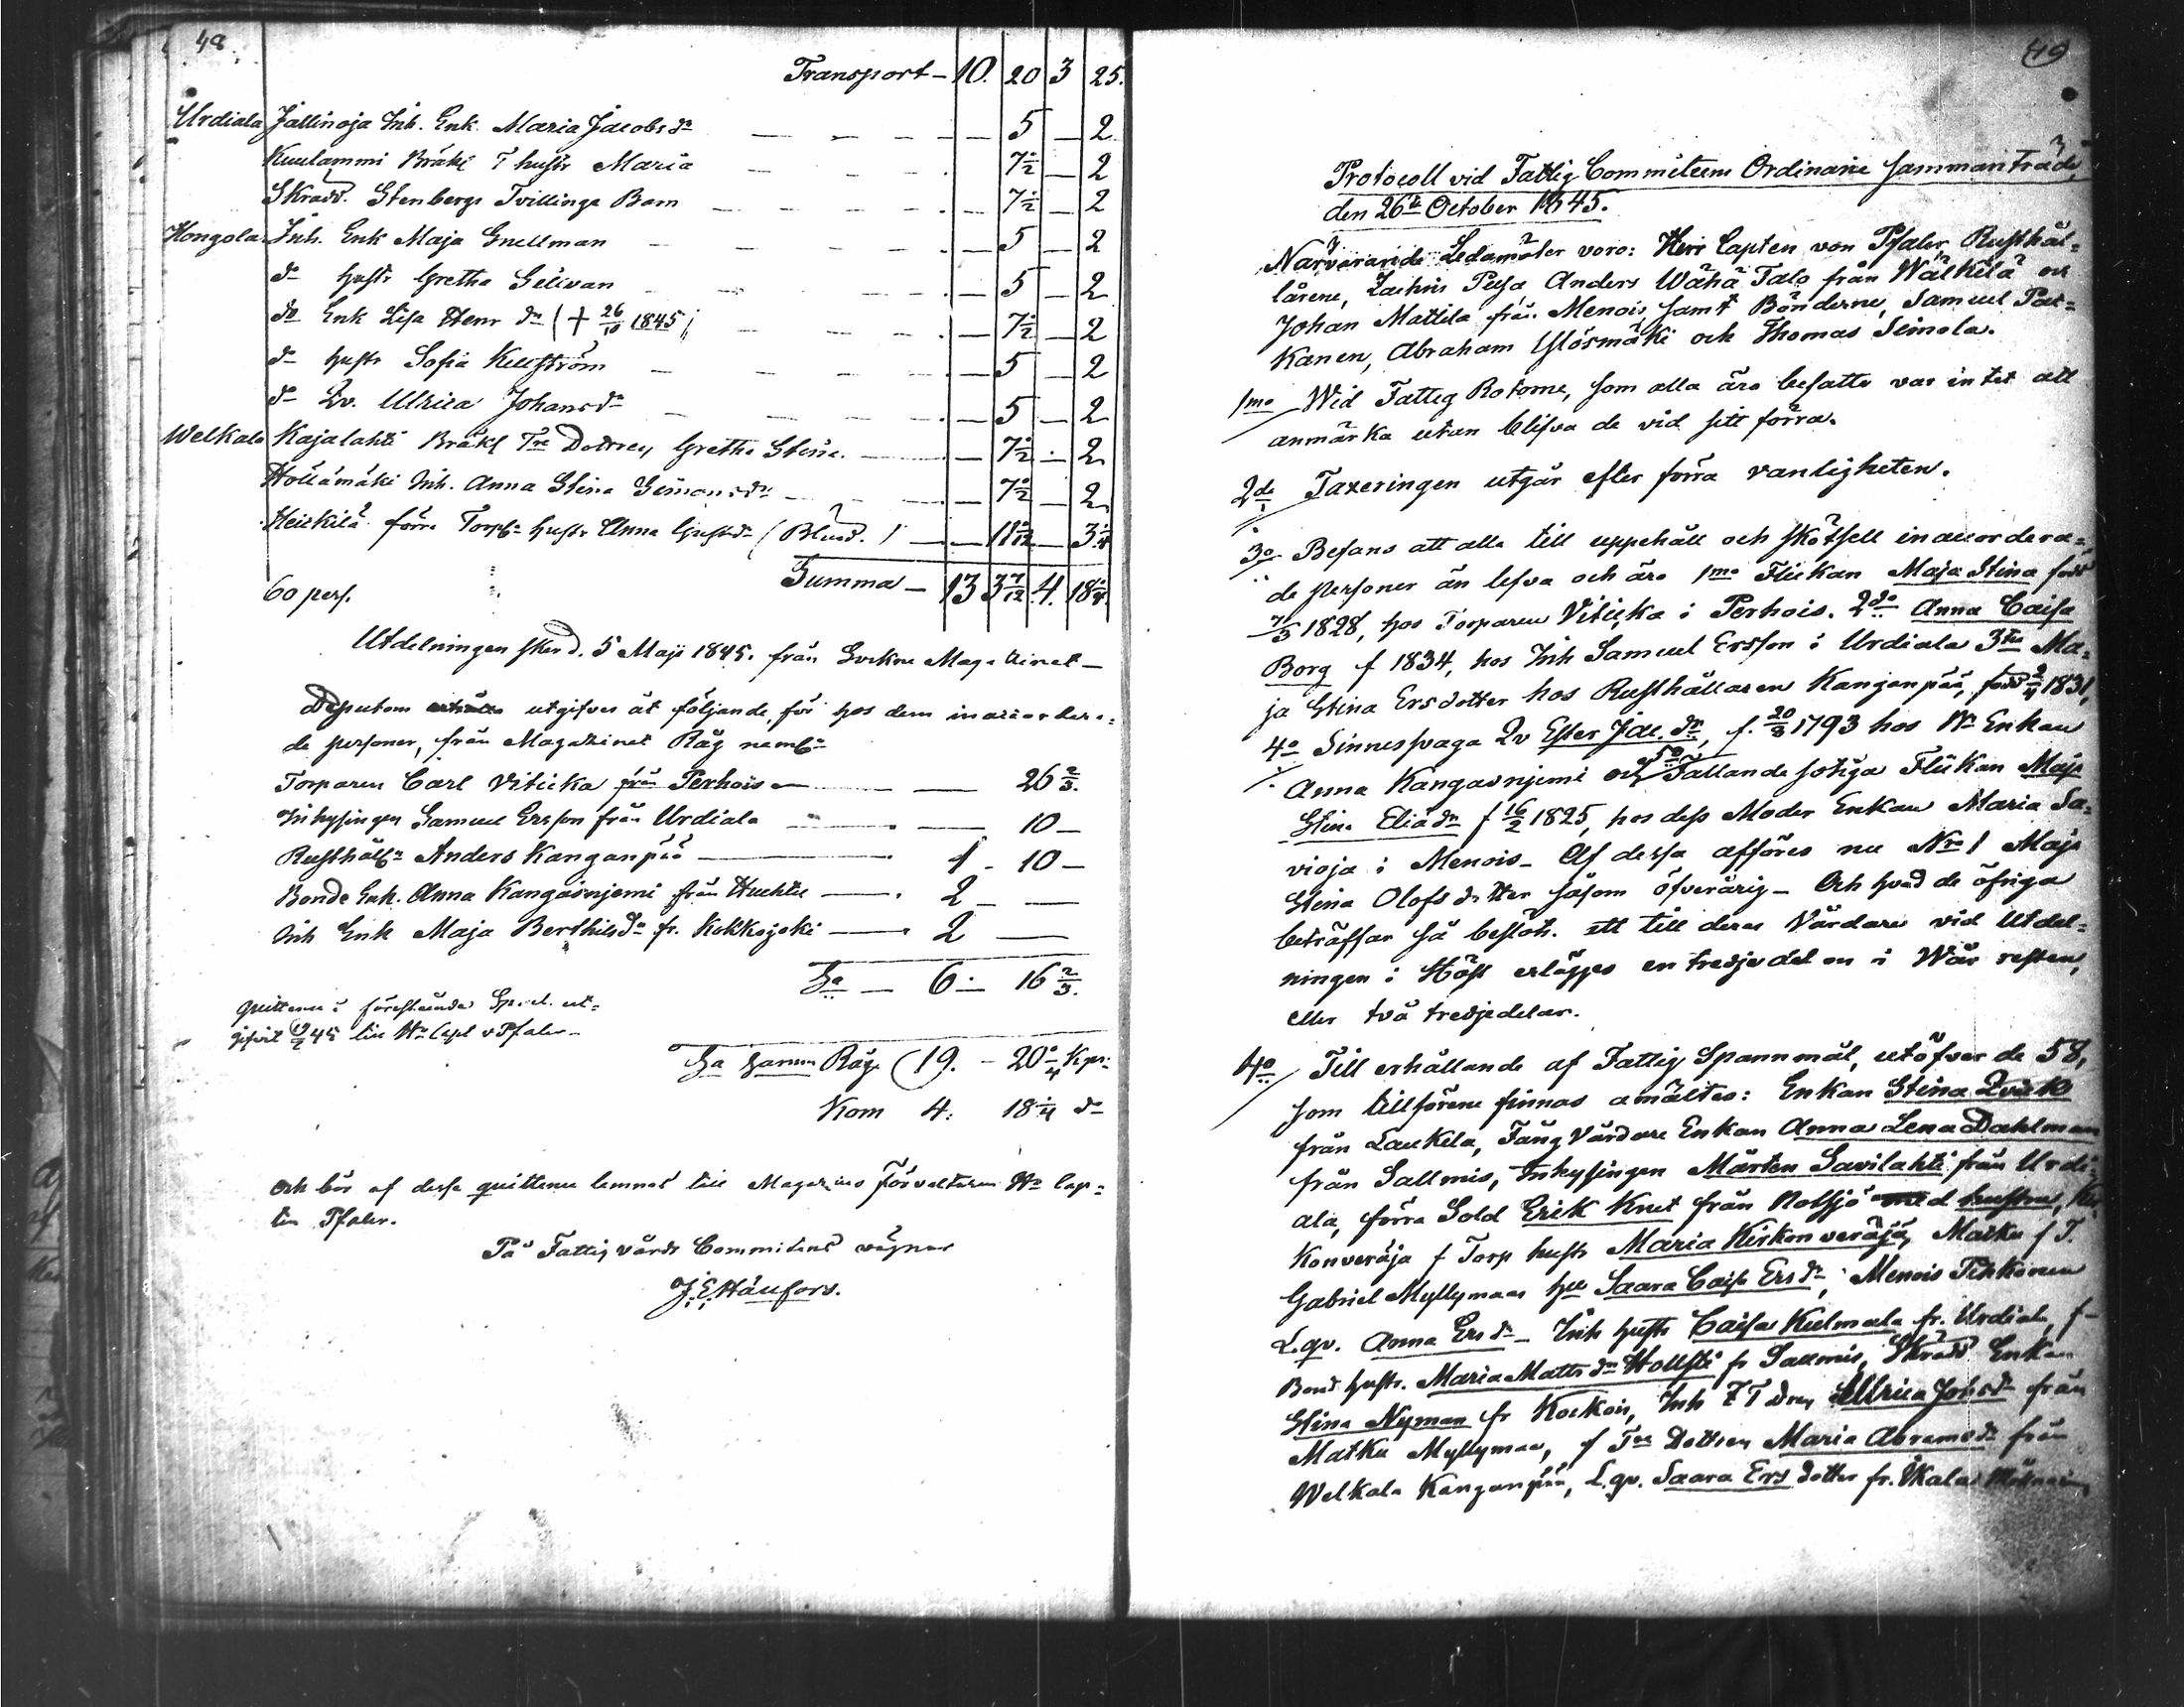 48.
Transport — 10. 20 3 25.
Urdiala Jallinoja Inh. Enk. Maria Jacobsdr — 5 — 2
Kuulammi Bräkl T hustr Maria — 7½ — 2
Skradd. Stenbergs Tvillinge Barn — 7½ — 2
Hongola Inh. Enk Maja Snellman — 5 — 2
do hustr Gretha — 5 — 2
do Enk Lisa Henr dr († 26/10 1845) — 7½ — 2
do hustr Sofia Kellström — 5 — 2
do Qv. Ulrica Johansdr — 5 — 2
Welkala Kajalahti Bräkl Tre Dottren Gretha Stina — 7½ — 2
Inh. Anna Stina Simonsdr — 7½ — 2
Heickilä förre Torpr hustr Anna Gustdr (Blind.) — 11 — 3
60 pers. Summa — 13 3 7/12 4. 18
Utdelningen sker d. 5 Maji 1845. från Sockne Magazinet —
Deputom utgifves åt följande för hos dem inaccordera=
de personer, från Magazinet Råg neml:
Torparen Carl Viticka från Perhois — 26 2/3.
Inhysingen Samuel Ersson från Urdiala — 10 —
Rusthåll:n Anders Kanganpää — 1 - 10 —
Bonde Enk. Anna Kangasnjemi från Huchti — 2 — —
Inh Enk Maja Berthilsdr fr. Kokkojoki — 2 —
Sa — 6 — 16 2/3.
quittence i föreståendes ut=
gifvit 45 till Hr Capt v Pfaler —
Sa Råg 19. — 20 Kpr:
Korn 4: 18 do
och bör af dessa quittence lemnas till Magazins Förvaltaren Hr Cap=
ten Pfaler.
På Fattigvårds Commitens vägnar
J. E. Hänfors.
49
Protocoll vid Fattig Commiteens Ordinarie sammanträde
den 26te October 1845.
Närvarande Ledamöter voro: Herr Capten von Pfaler, Rusthål=
larene, Anders Wähä Talo från Wälkilä och
Johan Mattila från Menois, samt Bönderne, Samuel Pac=
kanen, Abraham Ylösmäki och Thomas Seinola.
1mo Wid Fattig Rotorne, som alla äro besatte var intet att
anmärka utan blifva de vid sitt förra.
2do Taxeringen utgår efter förra vanligheten.
3o Befans att alla till uppehåll och skötsell inaccordera=
de personer än lefva och äro 1mo Flickan Maja Stina född
7/3 1828, hos Torparen Viticka i Perhois. 2do Anna Caisa
Borg f 1834, hos Inh Samuel Ersson i Urdiala 3tio Ma=
ja Stina Ersdotter hos Rusthållaren Kanganpää, född 1831,
4o Sinnessvaga Qv Ester Jac. dr, f. 20/3 1793 hos Bde Enkan
Anna Kangasnjemi och 5o Fallandesotiga Flickan Maja
Stina Eliædr f 16/2 1825, hos dess Moder Enkan Maria Sa=
vioja i Menois — Af dessa afföres nu Nro 1 Maja
Stina Olofsdotter såsom öfverårig — Och hvad de öfriga
beträffar så beslöts. att till deras Vårdare vid Utdel=
ningen i Höst erlägges en tredjedel och i Wår resten,
eller två tredjedelar.
4o Till erhållande af Fattig Spannmål, utöfver de 58,
som tillförene finnas anmältes: Enkan Stina Qvick
från Laukela, Fång Vårdare Enkan Anna Lena Dahlman
från Salmis, Inhysingen Mårten Savilahti från Urdi=
ala, förre Sold Erik Knut från Notsjö med hustru, Kir=
konveräja f Torp hustr Maria Kirkonveräjä, Matku f T.
Gabriel Myllymaas hu Saara Caisa Ersdr, Menois Pihkoinen
Lqv. Anna Ersdr — Inh hustr Caisa Kulmala fr. Urdiala, f —
Bond hustr. Maria Mattsdr Hollsti fr Salmis, Skradd Enkan
Stina Nyman fr Kockois, Inh f T Dren Ullrica Johsdr från
Matku Myllymaa, f Tre Dottren Maria Abramsdr från
Welkala Kanganpää, Lqv. Saara Ersdotter fr.